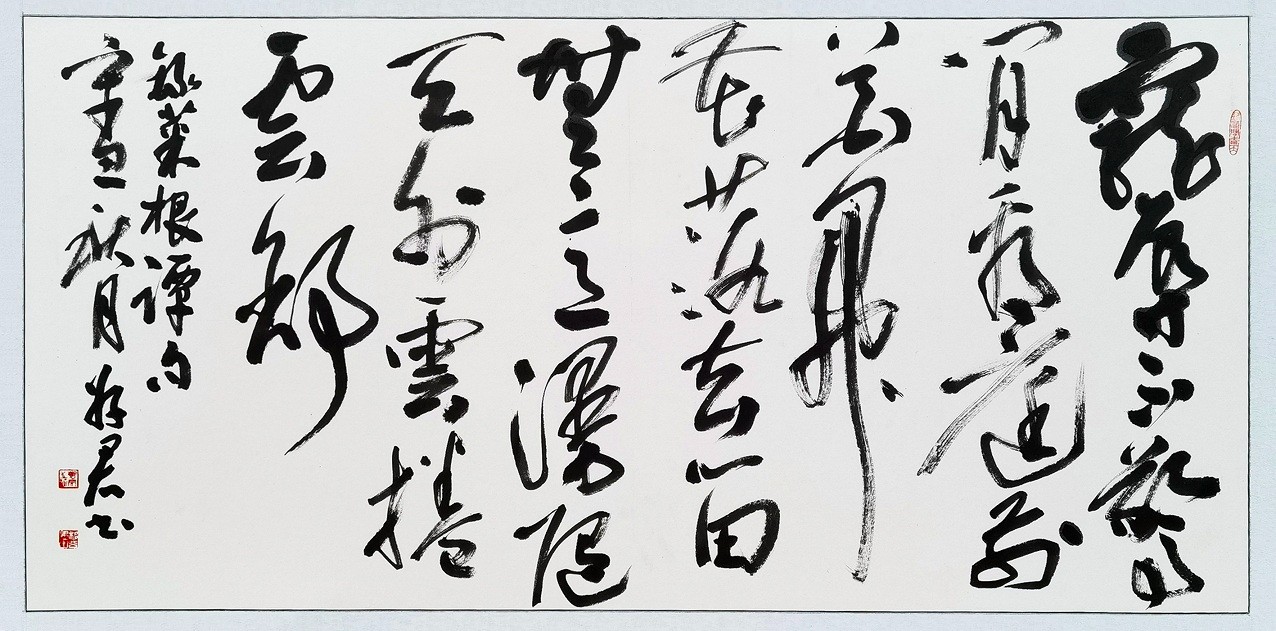 寵辱不驚
閒看庭前
花開
花落去留
無意漫隨
天外雲捲
雲舒
錄菜根譚句
秋月君书